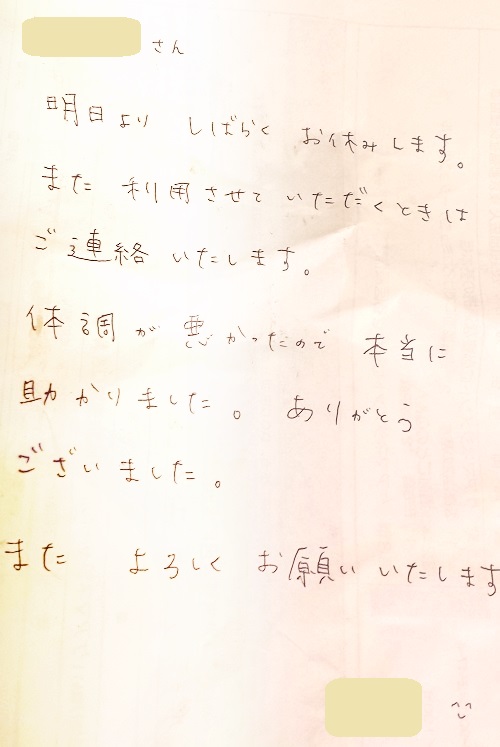 さん
明日より しばらく お休みします。
また 利用させて いただくときは
ご連絡 いたします。
体調が 悪かったので 本当に
助かりました。 ありがとう
ございました。
また よろしく お願い いたします